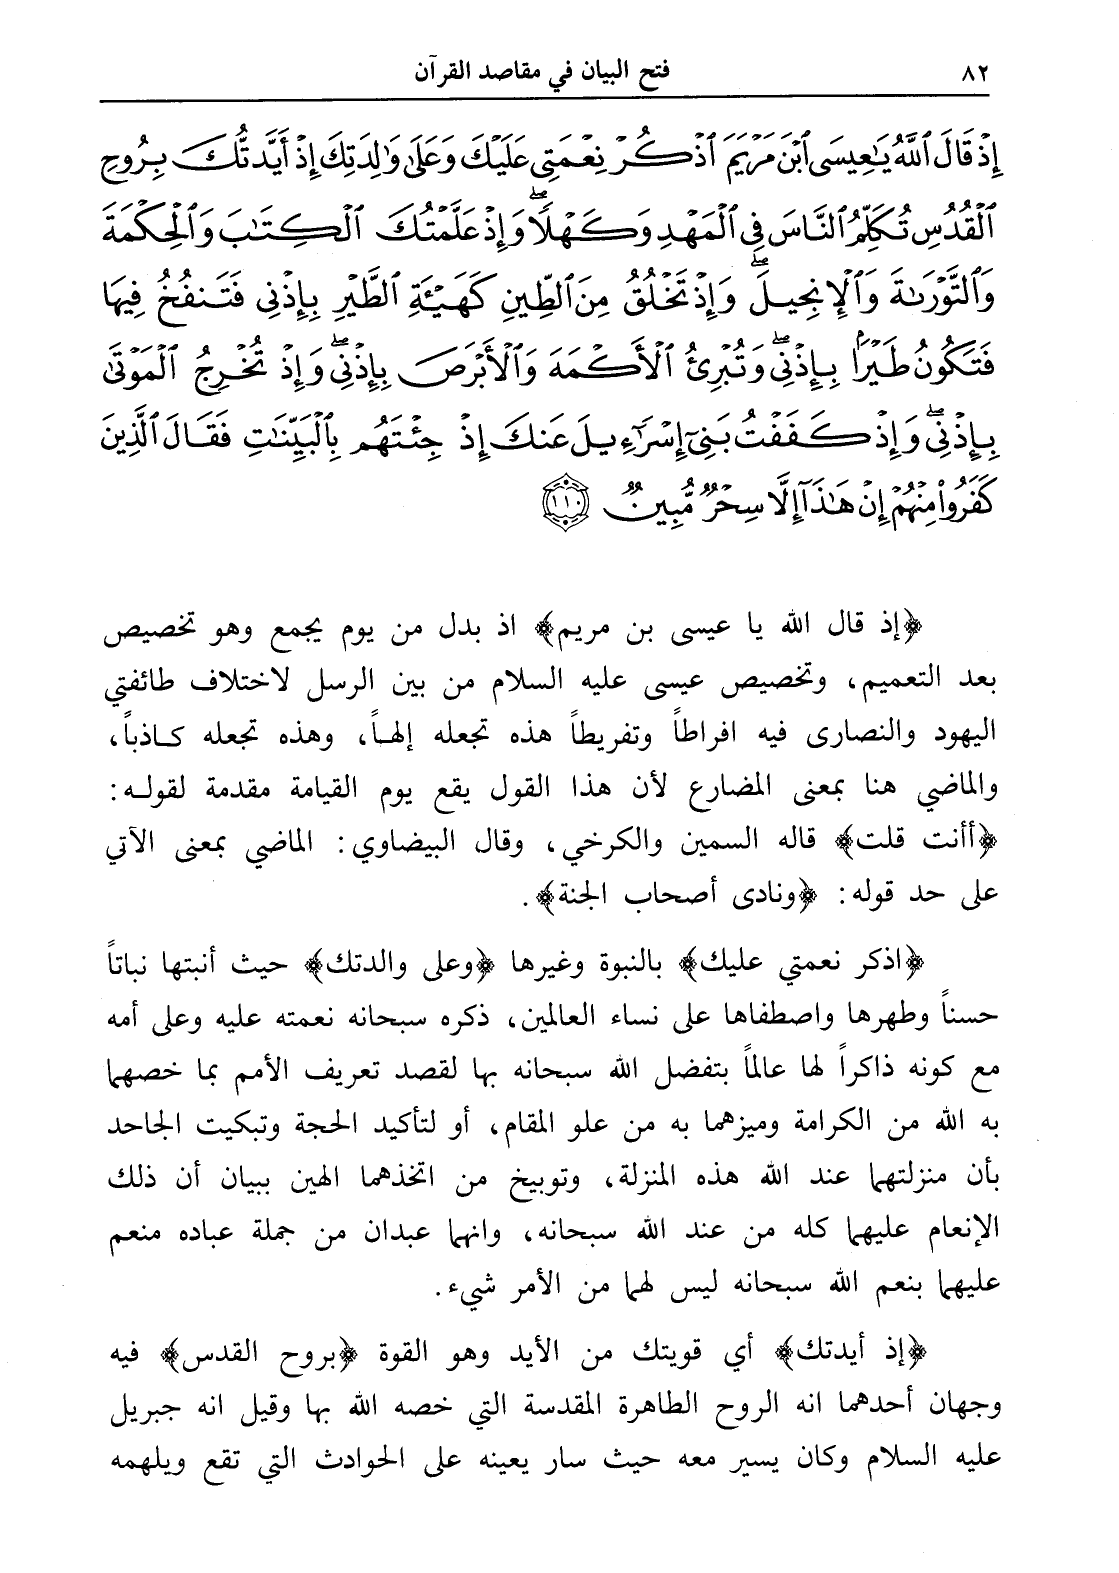 ٨٢ فتح البيان في مقاصد القرآن
إِذْ قَالَ ٱللَّهُ يَٰعِيسَى ٱبْنَ مَرْيَمَ ٱذْكُرْ نِعْمَتِى عَلَيْكَ وَعَلَىٰ وَٰلِدَتِكَ إِذْ أَيَّدتُّكَ بِرُوحِ
ٱلْقُدُسِ تُكَلِّمُ ٱلنَّاسَ فِى ٱلْمَهْدِ وَكَهْلًا ۖ وَإِذْ عَلَّمْتُكَ ٱلْكِتَٰبَ وَٱلْحِكْمَةَ
وَٱلتَّوْرَىٰةَ وَٱلْإِنجِيلَ ۖ وَإِذْ تَخْلُقُ مِنَ ٱلطِّينِ كَهَيْـَٔةِ ٱلطَّيْرِ بِإِذْنِى فَتَنفُخُ فِيهَا
فَتَكُونُ طَيْرًۢا بِإِذْنِى ۖ وَتُبْرِئُ ٱلْأَكْمَهَ وَٱلْأَبْرَصَ بِإِذْنِى ۖ وَإِذْ تُخْرِجُ ٱلْمَوْتَىٰ
بِإِذْنِى ۖ وَإِذْ كَفَفْتُ بَنِىٓ إِسْرَٰٓءِيلَ عَنكَ إِذْ جِئْتَهُم بِٱلْبَيِّنَٰتِ فَقَالَ ٱلَّذِينَ
كَفَرُوا۟ مِنْهُمْ إِنْ هَٰذَآ إِلَّا سِحْرٌ مُّبِينٌ ١١٠
﴿إذ قال الله يا عيسى بن مريم﴾ اذ بدل من يوم يجمع وهو تخصيص
بعد التعميم، وتخصيص عيسى عليه السلام من بين الرسل لاختلاف طائفتي
اليهود والنصارى فيه افراطاً وتفريطاً هذه تجعله إلهاً، وهذه تجعله كاذباً،
والماضي هنا بمعنى المضارع لأن هذا القول يقع يوم القيامة مقدمة لقوله:
﴿أأنت قلت﴾ قاله السمين والكرخي، وقال البيضاوي: الماضي بمعنى الآتي
على حد قوله: ﴿ونادى أصحاب الجنة﴾.
﴿اذكر نعمتي عليك﴾ بالنبوة وغيرها ﴿وعلى والدتك﴾ حيث أنبتها نباتاً
حسناً وطهرها واصطفاها على نساء العالمين، ذكره سبحانه نعمته عليه وعلى أمه
مع كونه ذاكراً لها عالماً بتفضل الله سبحانه بها لقصد تعريف الأمم بما خصهما
به الله من الكرامة وميزهما به من علو المقام، أو لتأكيد الحجة وتبكيت الجاحد
بأن منزلتهما عند الله هذه المنزلة، وتوبيخ من اتخذهما الهين ببيان أن ذلك
الإنعام عليهما كله من عند الله سبحانه، وانهما عبدان من جملة عباده منعم
عليهما بنعم الله سبحانه ليس لهما من الأمر شيء.
﴿إذ أيدتك﴾ أي قويتك من الأيد وهو القوة ﴿بروح القدس﴾ فيه
وجهان أحدهما انه الروح الطاهرة المقدسة التي خصه الله بها وقيل انه جبريل
عليه السلام وكان يسير معه حيث سار يعينه على الحوادث التي تقع ويلهمه